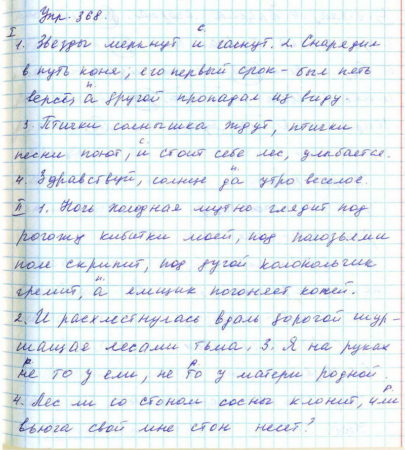 Упр. 368.
I с.
1. Звезды меркнут и гаснут. 2. Снарядил
в путь коня, его первый срок - был пять
п.
верст, а другой пропадал из виду.
3. Птички солнышка ждут, птички
с.
песни поют, и стоит себе лес, улыбается.
п.
4. Здравствуй, солнце да утро веселое.
II 1. Ночь холодная мутно глядит под
рогожу кибитки моей, под полозьями
поле скрипит, под дугой колокольчик
п.
гремит, а ямщик погоняет коней.
2. И расхлестнулась вдаль дорогой шур-
шащая лесами тьма. 3. Я на руках
р. р.
не то у ели, не то у матери родной.
р.
4. Лес ли со стоном сосны клонит, или
вьюга свой мне стон несет?